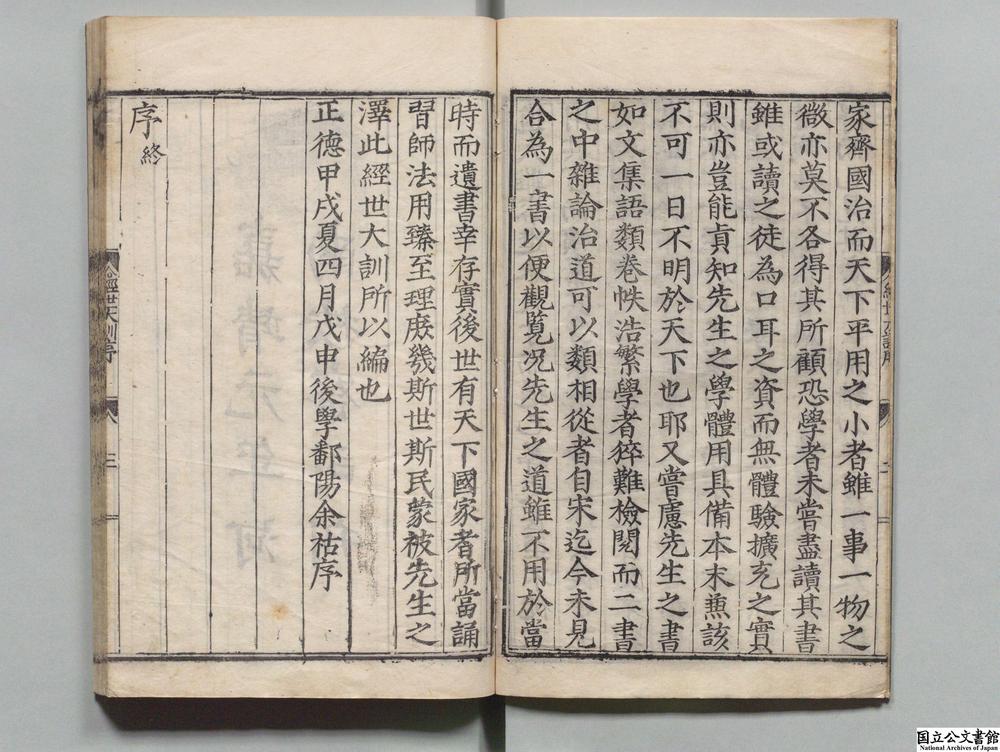 家齊國治而天下平用之小者雖一事一物之
微亦莫不各得其所顧恐學者未嘗盡讀其書
雖或讀之徒為口耳之資而無體驗擴充之實
則亦豈能真知先生之學體用具備本末兼該
不可一日不明於天下也耶又嘗慮先生之書
如文集語類卷帙浩繁學者猝難檢閱而二書
之中雜論治道可以類相從者自宋迄今未見
合為一書以便觀覧况先生之道雖不用於當
時而遺書幸存實後世有天下國家者所當誦
習師法用臻至理庻幾斯世斯民蒙被先生之
澤此經世大訓所以編也
正德甲戌夏四月戊申後學鄱陽余祜序
序終
經世大訓序
二
經世大訓序
三
国立公文書館
National Archives of Japan